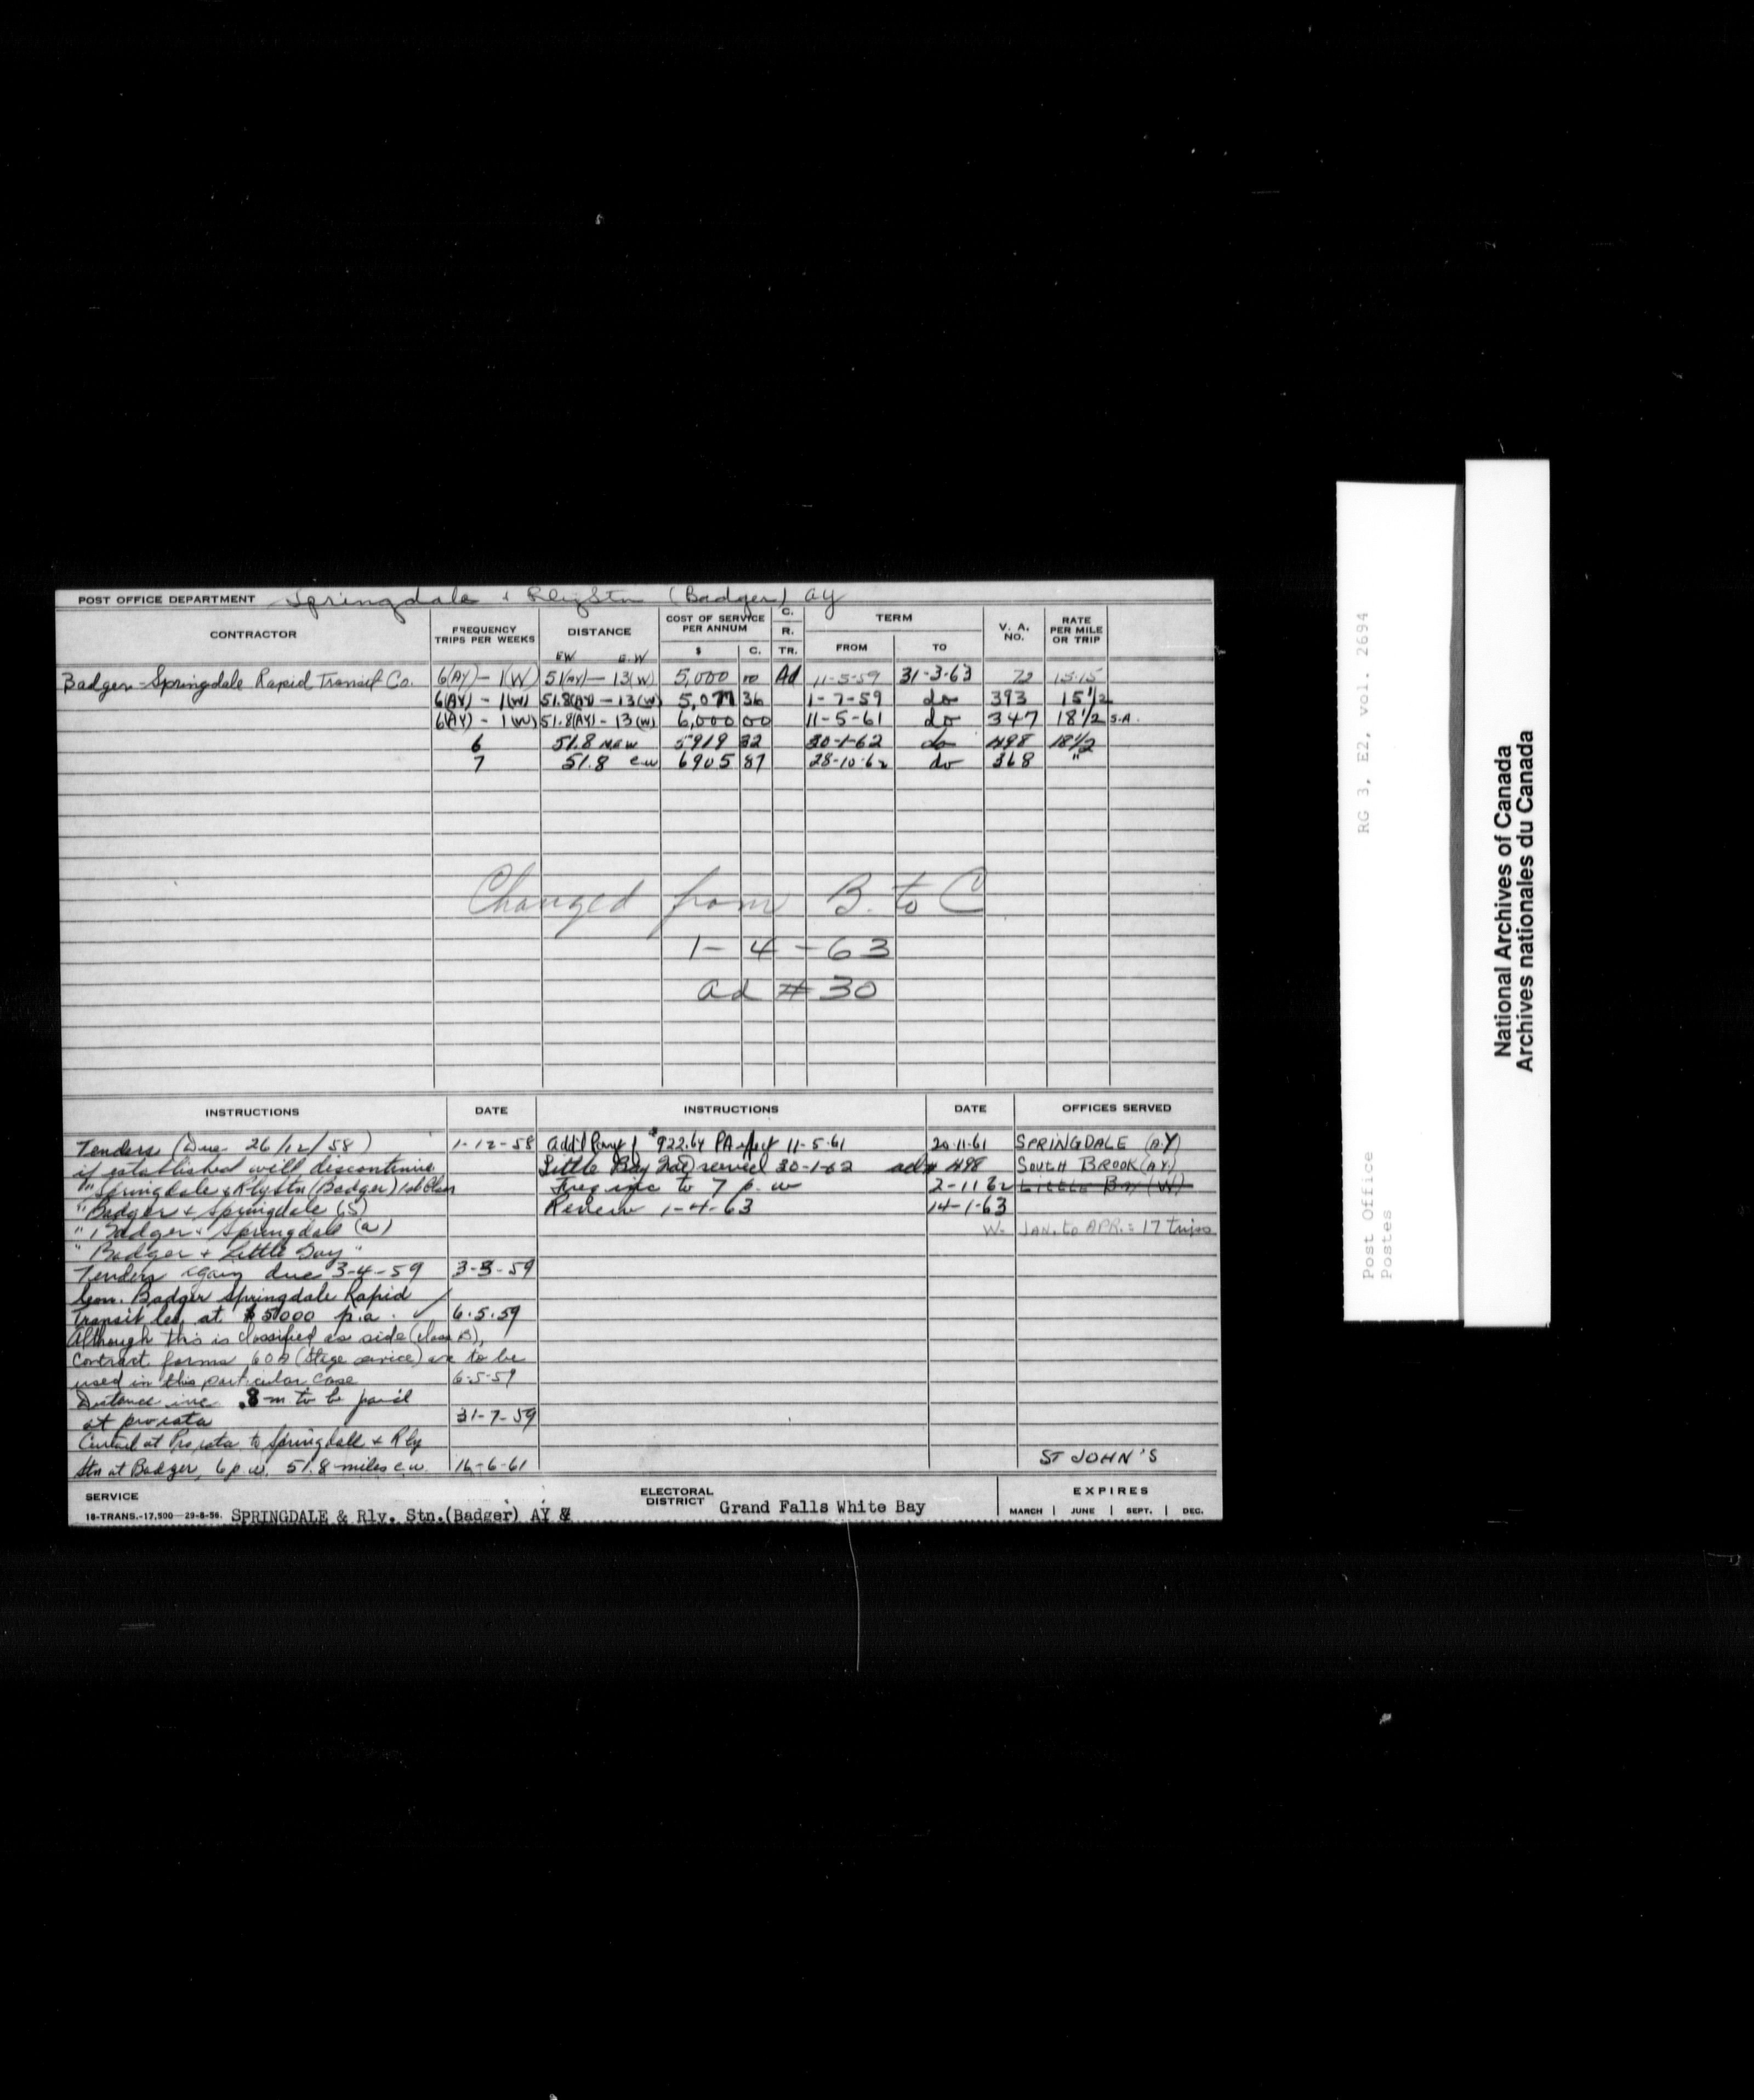 POST OFFICE DEPARTMENT Springdale & Rly Stn (Badger) AY
CONTRACTOR FREQUENCY TRIPS PER WEEKS DISTANCE COST OF SERVICE PER ANNUM $ C. C. R. TR. TERM FROM TO V. A. NO. RATE PER MILE OR TRIP
EW E.W
Badger-Springdale Rapid Transit Co. 6(AY) - 1(W) 51(AY) - 13(W) 5,000 00 Ad 11-5-59 31-3-63 72 15.15
6(AY) - 1(W) 51.8(AY) - 13(W) 5,077 36 1-7-59 do 393 15½
6(AY) - 1(W) 51.8(AY) - 13(W) 6,000 00 11-5-61 do 347 18½ S.A.
6 51.8 NEW 5919 32 30-1-62 do 498 18½
7 51.8 ew 6905 87 28-10-62 do 368 "
Changed from B. to C
1-4-63
ad # 30
INSTRUCTIONS DATE INSTRUCTIONS DATE OFFICES SERVED
Tenders (Due 26/12/58) 1-12-58 add'l 922.64 PA 11-5-61 20-11-61 SPRINGDALE (A.Y)
if established will discontinue Little Bay 30-1-62 ad# 498 SOUTH BROOK (A.Y.)
"Springdale & Rly Stn (Badger) Freq inc to 7 p. w 2-11 62 Little Bay (W)
"Badger & Springdale (S) Renew 1-4-63 14-1-63
"Badger & Springdale (a) W- JAN. to APR. = 17 trips
"Badger & Little Bay"
Tenders again due 3-4-59 3-3-59
Con. Badger Springdale Rapid
Transit Co. at $5000 p.a. ✓ 6.5.59
Although this is classified as side (class B),
Contract forms 60B (Stage service) are to be
used in this particular case 6-5-59
Distance inc .8 m to be paid
at prorata 31-7-59
Curtail at Pro rata to Springdale & Rly
Stn at Badger, 6 p.w. 51.8 miles e.w. 16-6-61
ST JOHN'S
SERVICE
18-TRANS.-17,500-29-8-56. SPRINGDALE & Rly. Stn.(Badger) AY
ELECTORAL DISTRICT Grand Falls White Bay
EXPIRES
MARCH | JUNE | SEPT. | DEC.
RG 3, E2, vol. 2694
Post Office
Postes
National Archives of Canada
Archives nationales du Canada